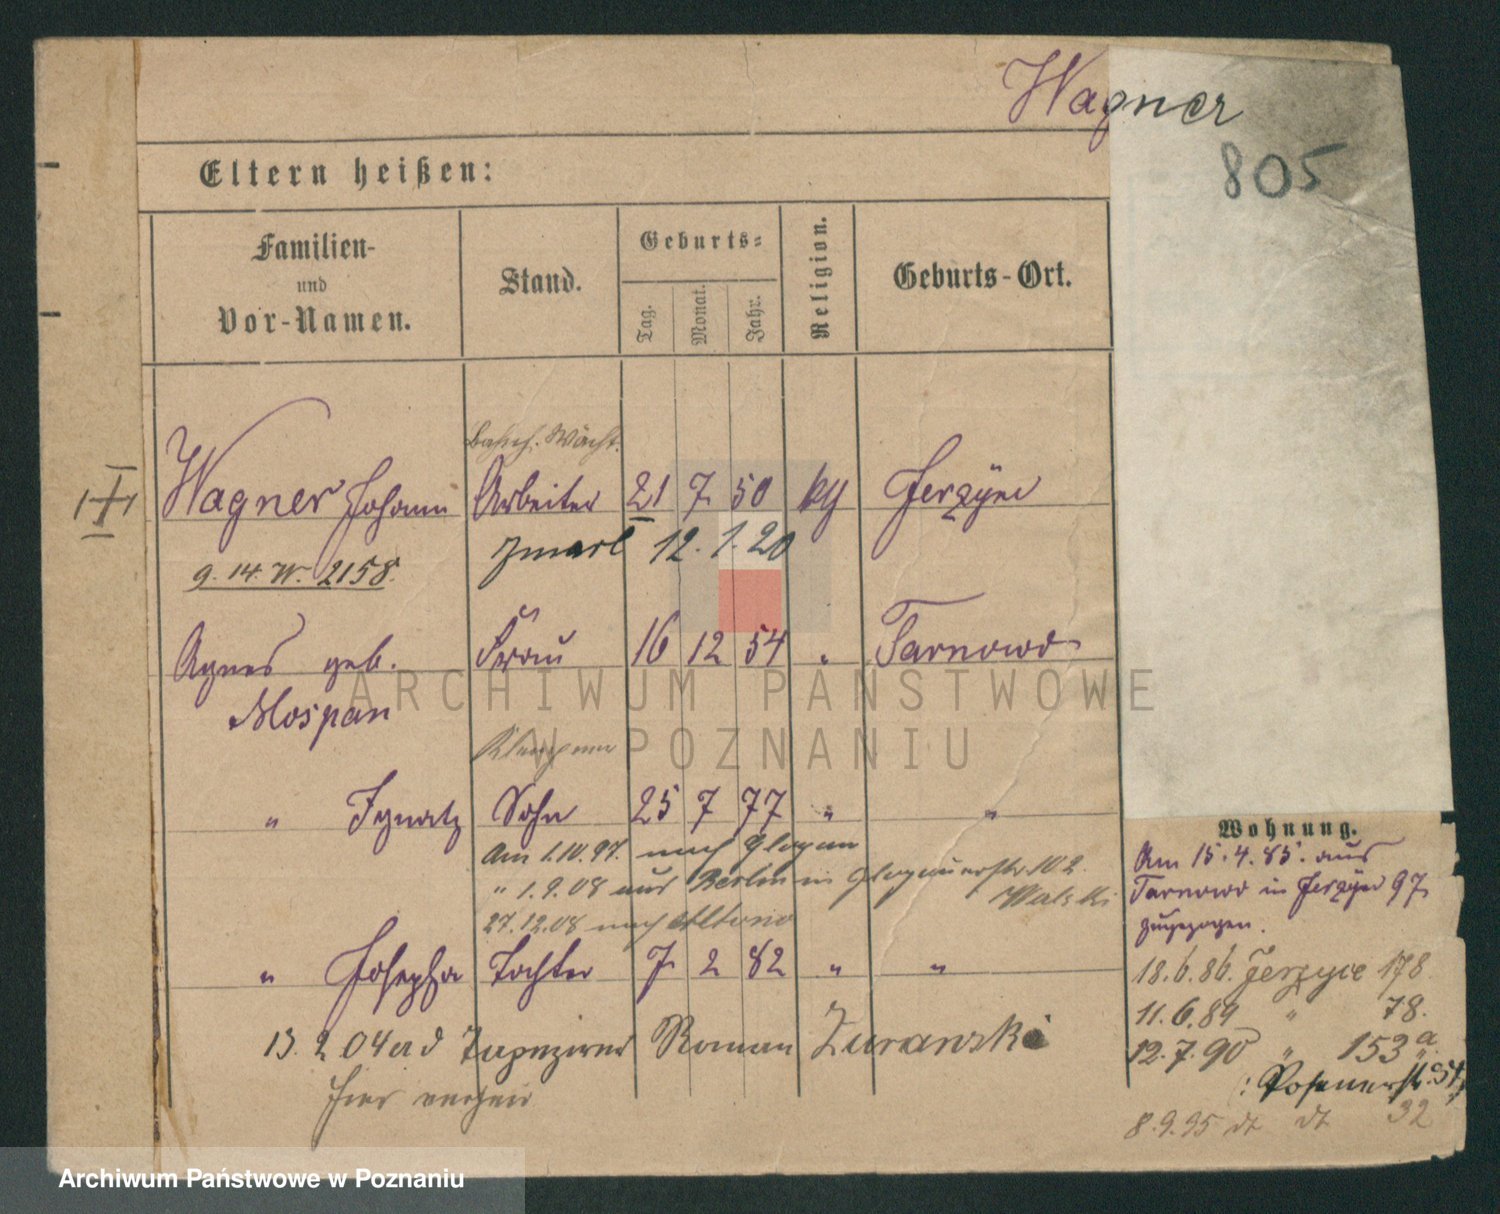 Wagner
805
Eltern heißen:
Familien-
und
Vor-Namen.
Stand.
Geburts-
Tag.
Monat.
Jahr.
Religion.
Geburts-Ort.
Bahnh. Wächt.
Wagner Johann Arbeiter 21 7 50 kg Jerzyce
zmarł 12. 1. 20
9. 14. W. 2158.
Agnes geb. Frau 16 12 54 " Tarnowo
Mospan
Klempner
" Ignatz Sohn 25 7 77 " "
Am 1.10.97. nach Glogau
" 1.9.08 aus Berlin in Glogauerstr 102.
Walski
27.12.08 nach
" Josepha Tochter 7 2 82 " "
13. 2 04 a d Tapezierer Roman Zurawski
hier verheir
Wohnung.
Am 15.4.85. aus
Tarnowo in Jerzyce 97
zugezogen.
18.6.86. Jerzyce 178.
11.6.89 " 78.
12.7.90 " 153a.
: Posenerstr. 54
8.9.95 dt dt 32
ARCHIWUM PAŃSTWOWE
W POZNANIU
Archiwum Państwowe w Poznaniu